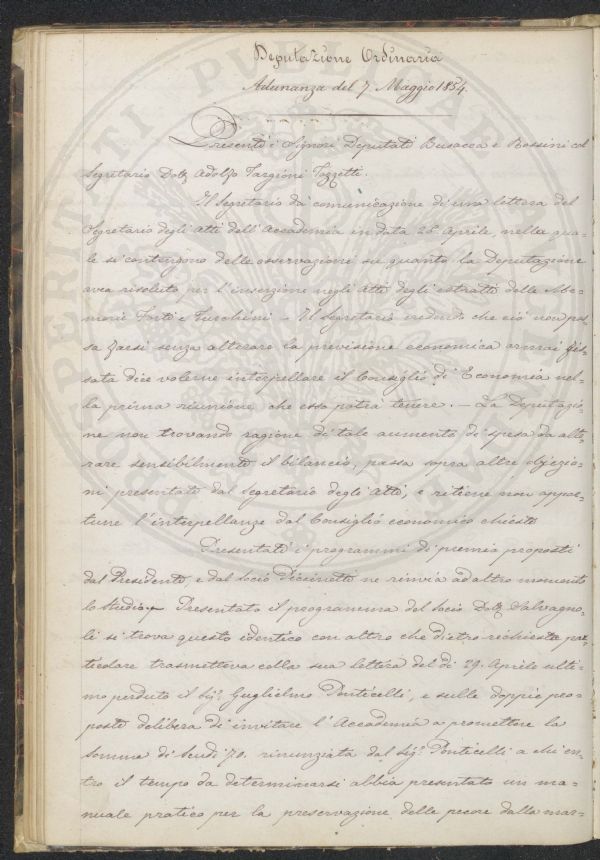 Deputazione Ordinaria
Adunanza del 7 Maggio 1854.
Presenti i Signori Deputati Busacca e Rossini col
Segretario Dott. Adolfo Targioni Tozzetti.
Il Segretario dà comunicazione di una lettera del
Segretario degli Atti dell'Accademia in data 28 Aprile, nella qua-
le si contengono delle osservazioni su quanto la Deputazione
avea risoluto per l'inserzione negli Atti degli estratti delle Me-
morie Forti e Turchini - Il Segretario credendo che ciò non pos-
sa farsi senza alterare la previsione economica ormai fis-
sata dice volerne interpellare il Consiglio di Economia nel-
la prima riunione che esso potrà tenere. - La Deputazio-
ne non trovando ragione di tale aumento di spesa da alte-
rare sensibilmente il bilancio, passa sopra altre objezio-
ni presentate dal Segretario degli Atti, e ritiene non oppor-
tune l'interpellanze dal Consiglio economico chieste
Presentati i programmi di premio proposti
dal Presidente e dal socio ne rinvia ad altro momento
lo studio Presentato il programma del socio Dott. Salvagno-
li si trova questo identico con altro che dietro richieste par-
ticolare trasmetteva colla sua lettera del dì 29. Aprile ulti-
mo perduto il Sigr. Guglielmo Ponticelli, e sulle doppie pro-
poste delibera di invitare l'Accademia a promettere la
somma di Scudi 70. rinunziata dal Sigr. Ponticelli a chi en-
tro il tempo da determinarsi abbia presentato un ma-
nuale pratico per la preservazione delle pecore dalla mar-
PROSPERITATI PUBLICAE AUGENDAE